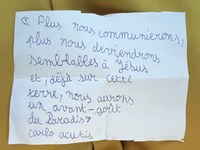 « Plus nous communierons,
plus nous deviendrons
semblables à Jésus
et, déjà sur cette
terre, nous aurons
un avant-goût
du Paradis »
carlo acutis